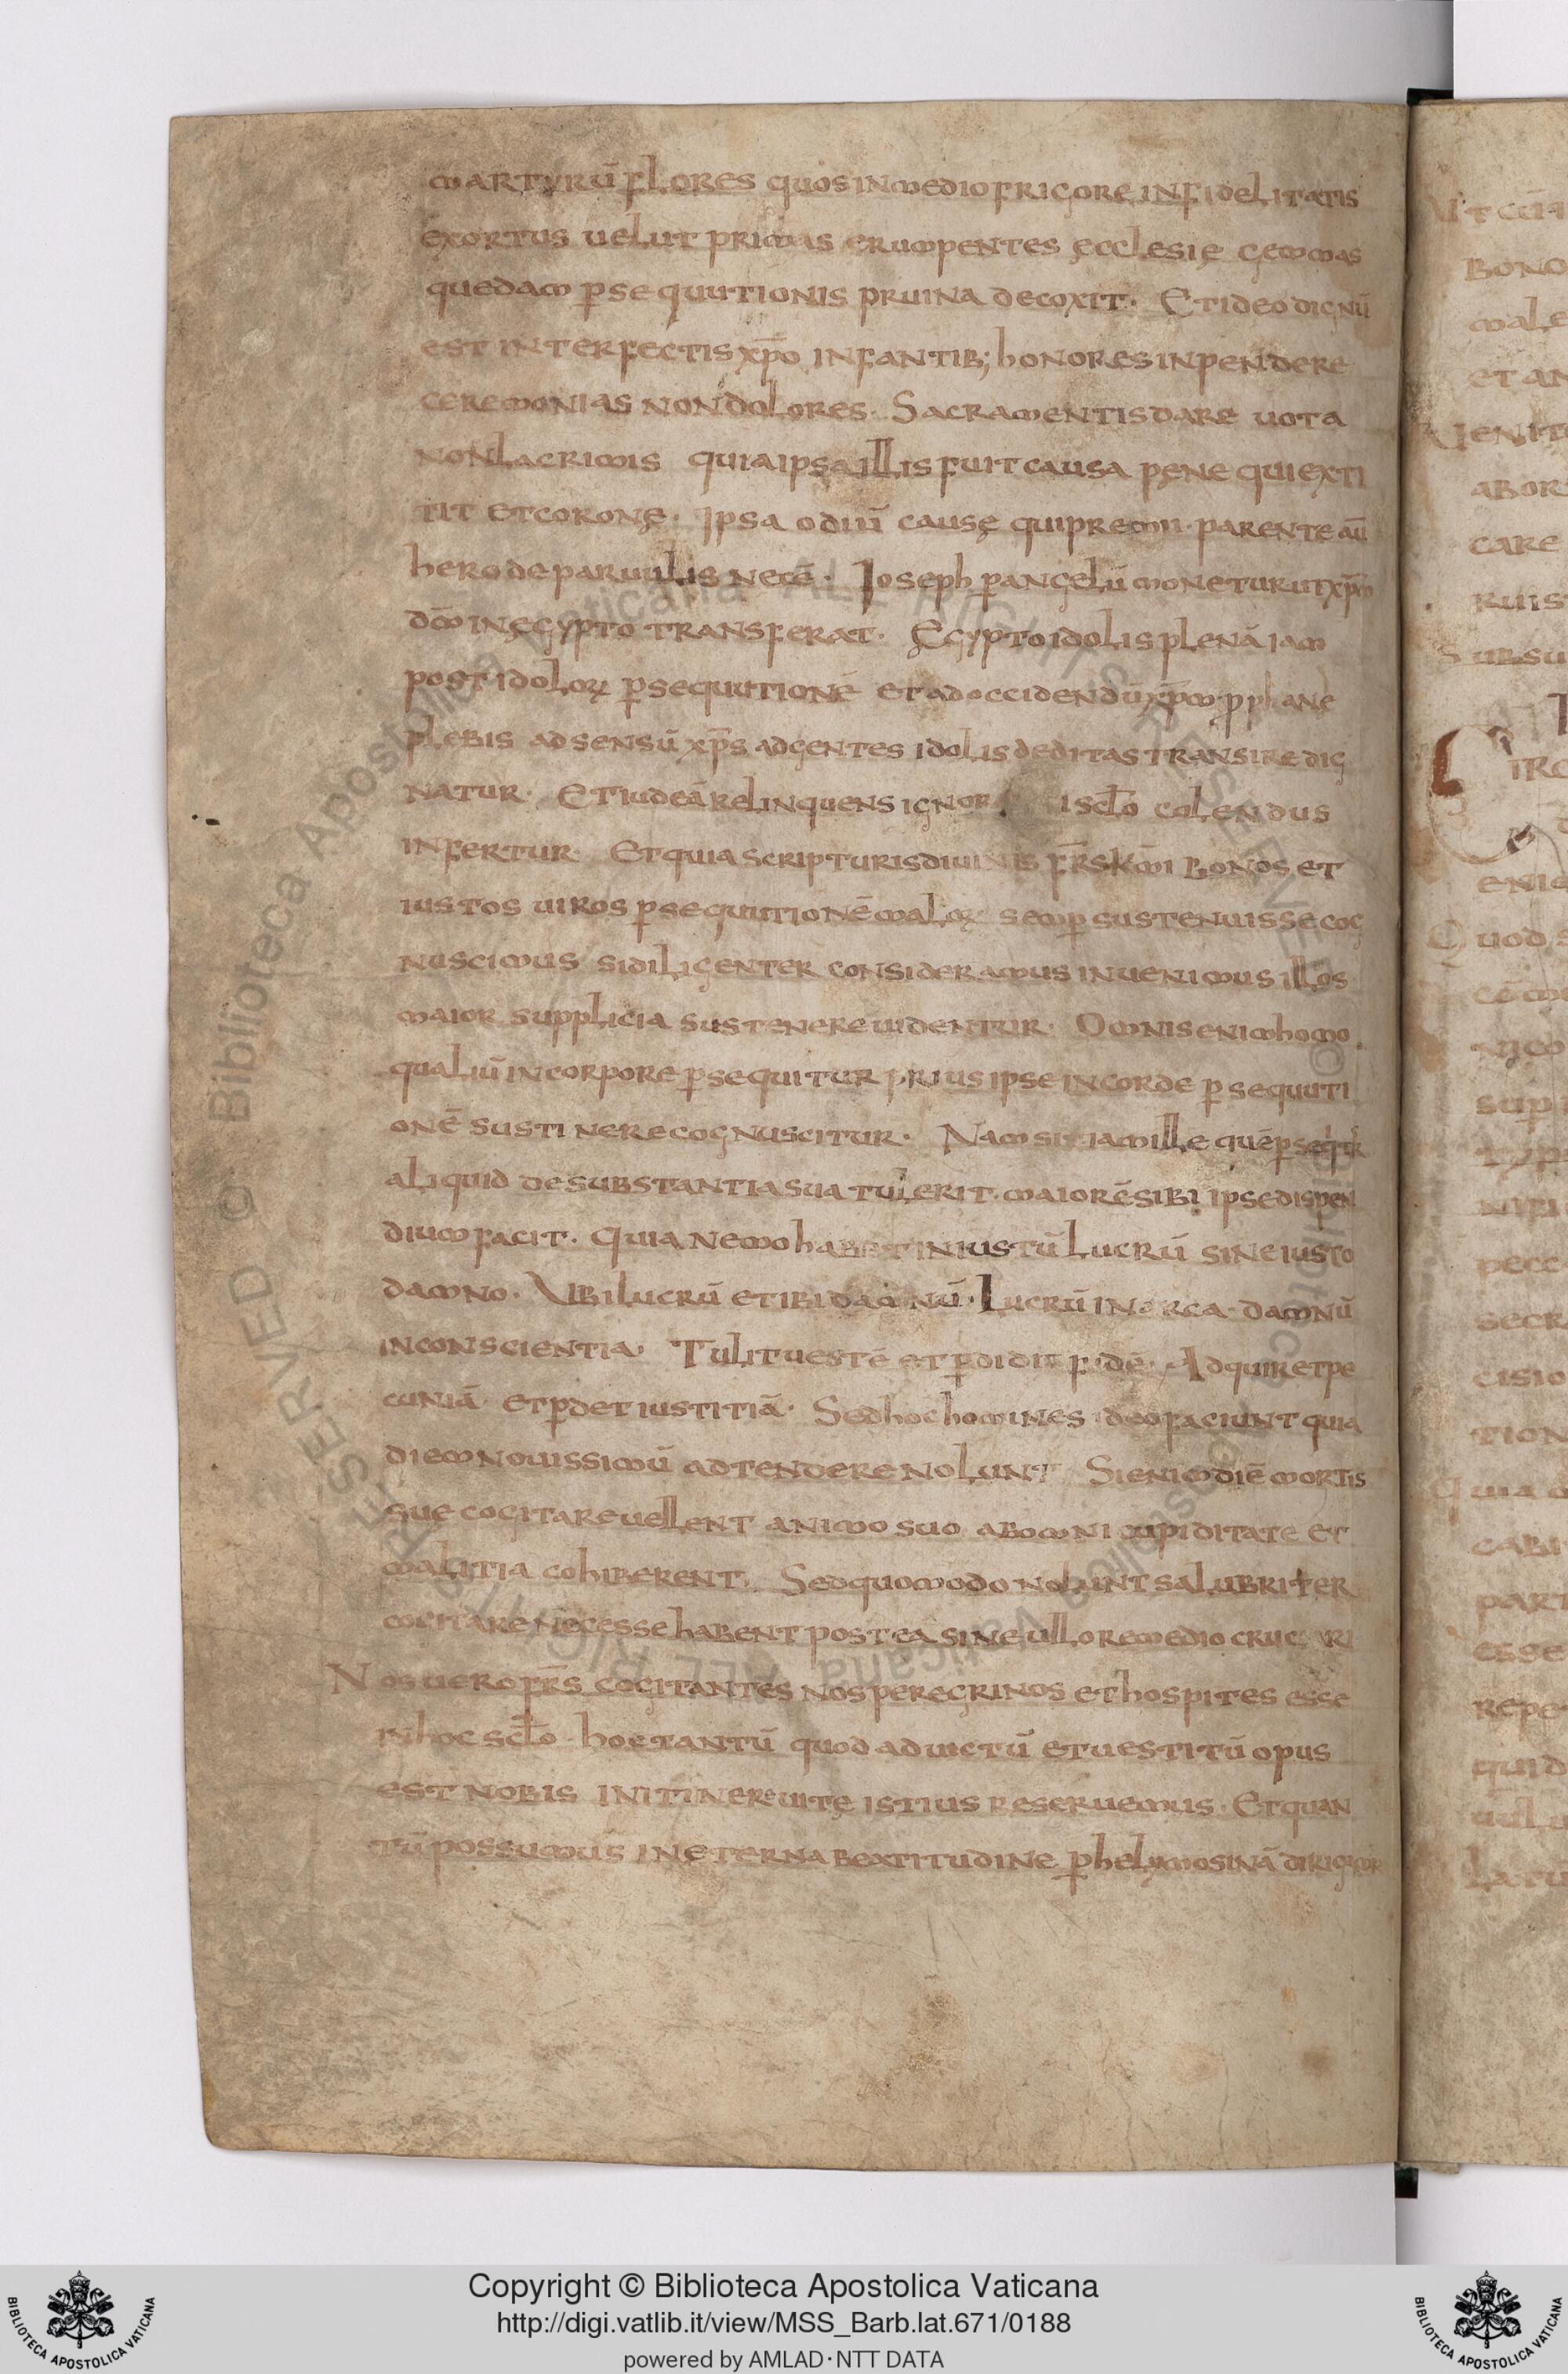 martyrū flores quos in medio frigore infidelitatis
exortus uelut primas erumpentes ęcclesię gemmas
quedam p̄sequutionis pruina decoxit. Et ideo dignū
est interfectis xp̄o infantib; honores inpendere
ceremonias non dolores. Sacramentis dare uota
non lacrimis quia ipsa illis fuit causa pęne qui exti
tit et coronę. Ipsa odiū causę qui premii. parente aū
herode paruulis necē. Ioseph p̄ angelū monetur ut xp̄m
dm̄ in ęgypto transferat. Egypto idolis plenā iam
post idoloꝝ p̄sequutionē et ad occidendū xp̄m
plebis adsensū xp̄s ad gentes idolis deditas transire dig
natur. Et iudeā relinquens scl̄o colendus
infertur. Et quia scripturis diuinis fr̄s km̄i bonos et
iustos uiros p̄sequutionē maloꝝ semp̄ sustenuisse cog
nuscimus si diligenter consideramus inuenimus illos
maior supplicia sustenere uidentur. Omnis enim homo
qualiū in corpore p̄sequitur prius ipse in corde p̄sequuti
onē sustinere cognuscitur. Nam si iam ille quē p̄seqitr
aliquid de substantia sua tulerit. maiorē sibi ipse dispen
dium facit. Quia nemo habet iniustū lucrū sine iusto
damno. Ubi lucrū et ibi damnū. Lucrū in arca. damnū
in conscientia. Tulit uestē et p̄didit fidē. Adquiret pe
cuniā. et p̄det iustitiā. Sed hoc homines ideo faciunt quia
diem nouissimū adtendere nolunt. Si enim diē mortis
sue cogitare uellent animo suo ab omni cupiditate et
malitia cohiberent. Sed quomodo nolunt salubriter
necesse habent postea sine ullo remedio cruciari
Nos uero fr̄s cogitantes nos peregrinos et hospites esse
in hoc scl̄o. hoc tantū quod ad uictū et uestitū opus
est nobis in itinere uitę istius reseruemus. Et quan
tū possumus in ęterna beatitudine p̄ helymosinā
© Biblioteca Apostolica Vaticana ALL RIGHTS RESERVED
Copyright © Biblioteca Apostolica Vaticana
http://digi.vatlib.it/view/MSS_Barb.lat.671/0188
powered by AMLAD·NTT DATA
BIBLIOTECA APOSTOLICA VATICANA
BIBLIOTECA APOSTOLICA VATICANA